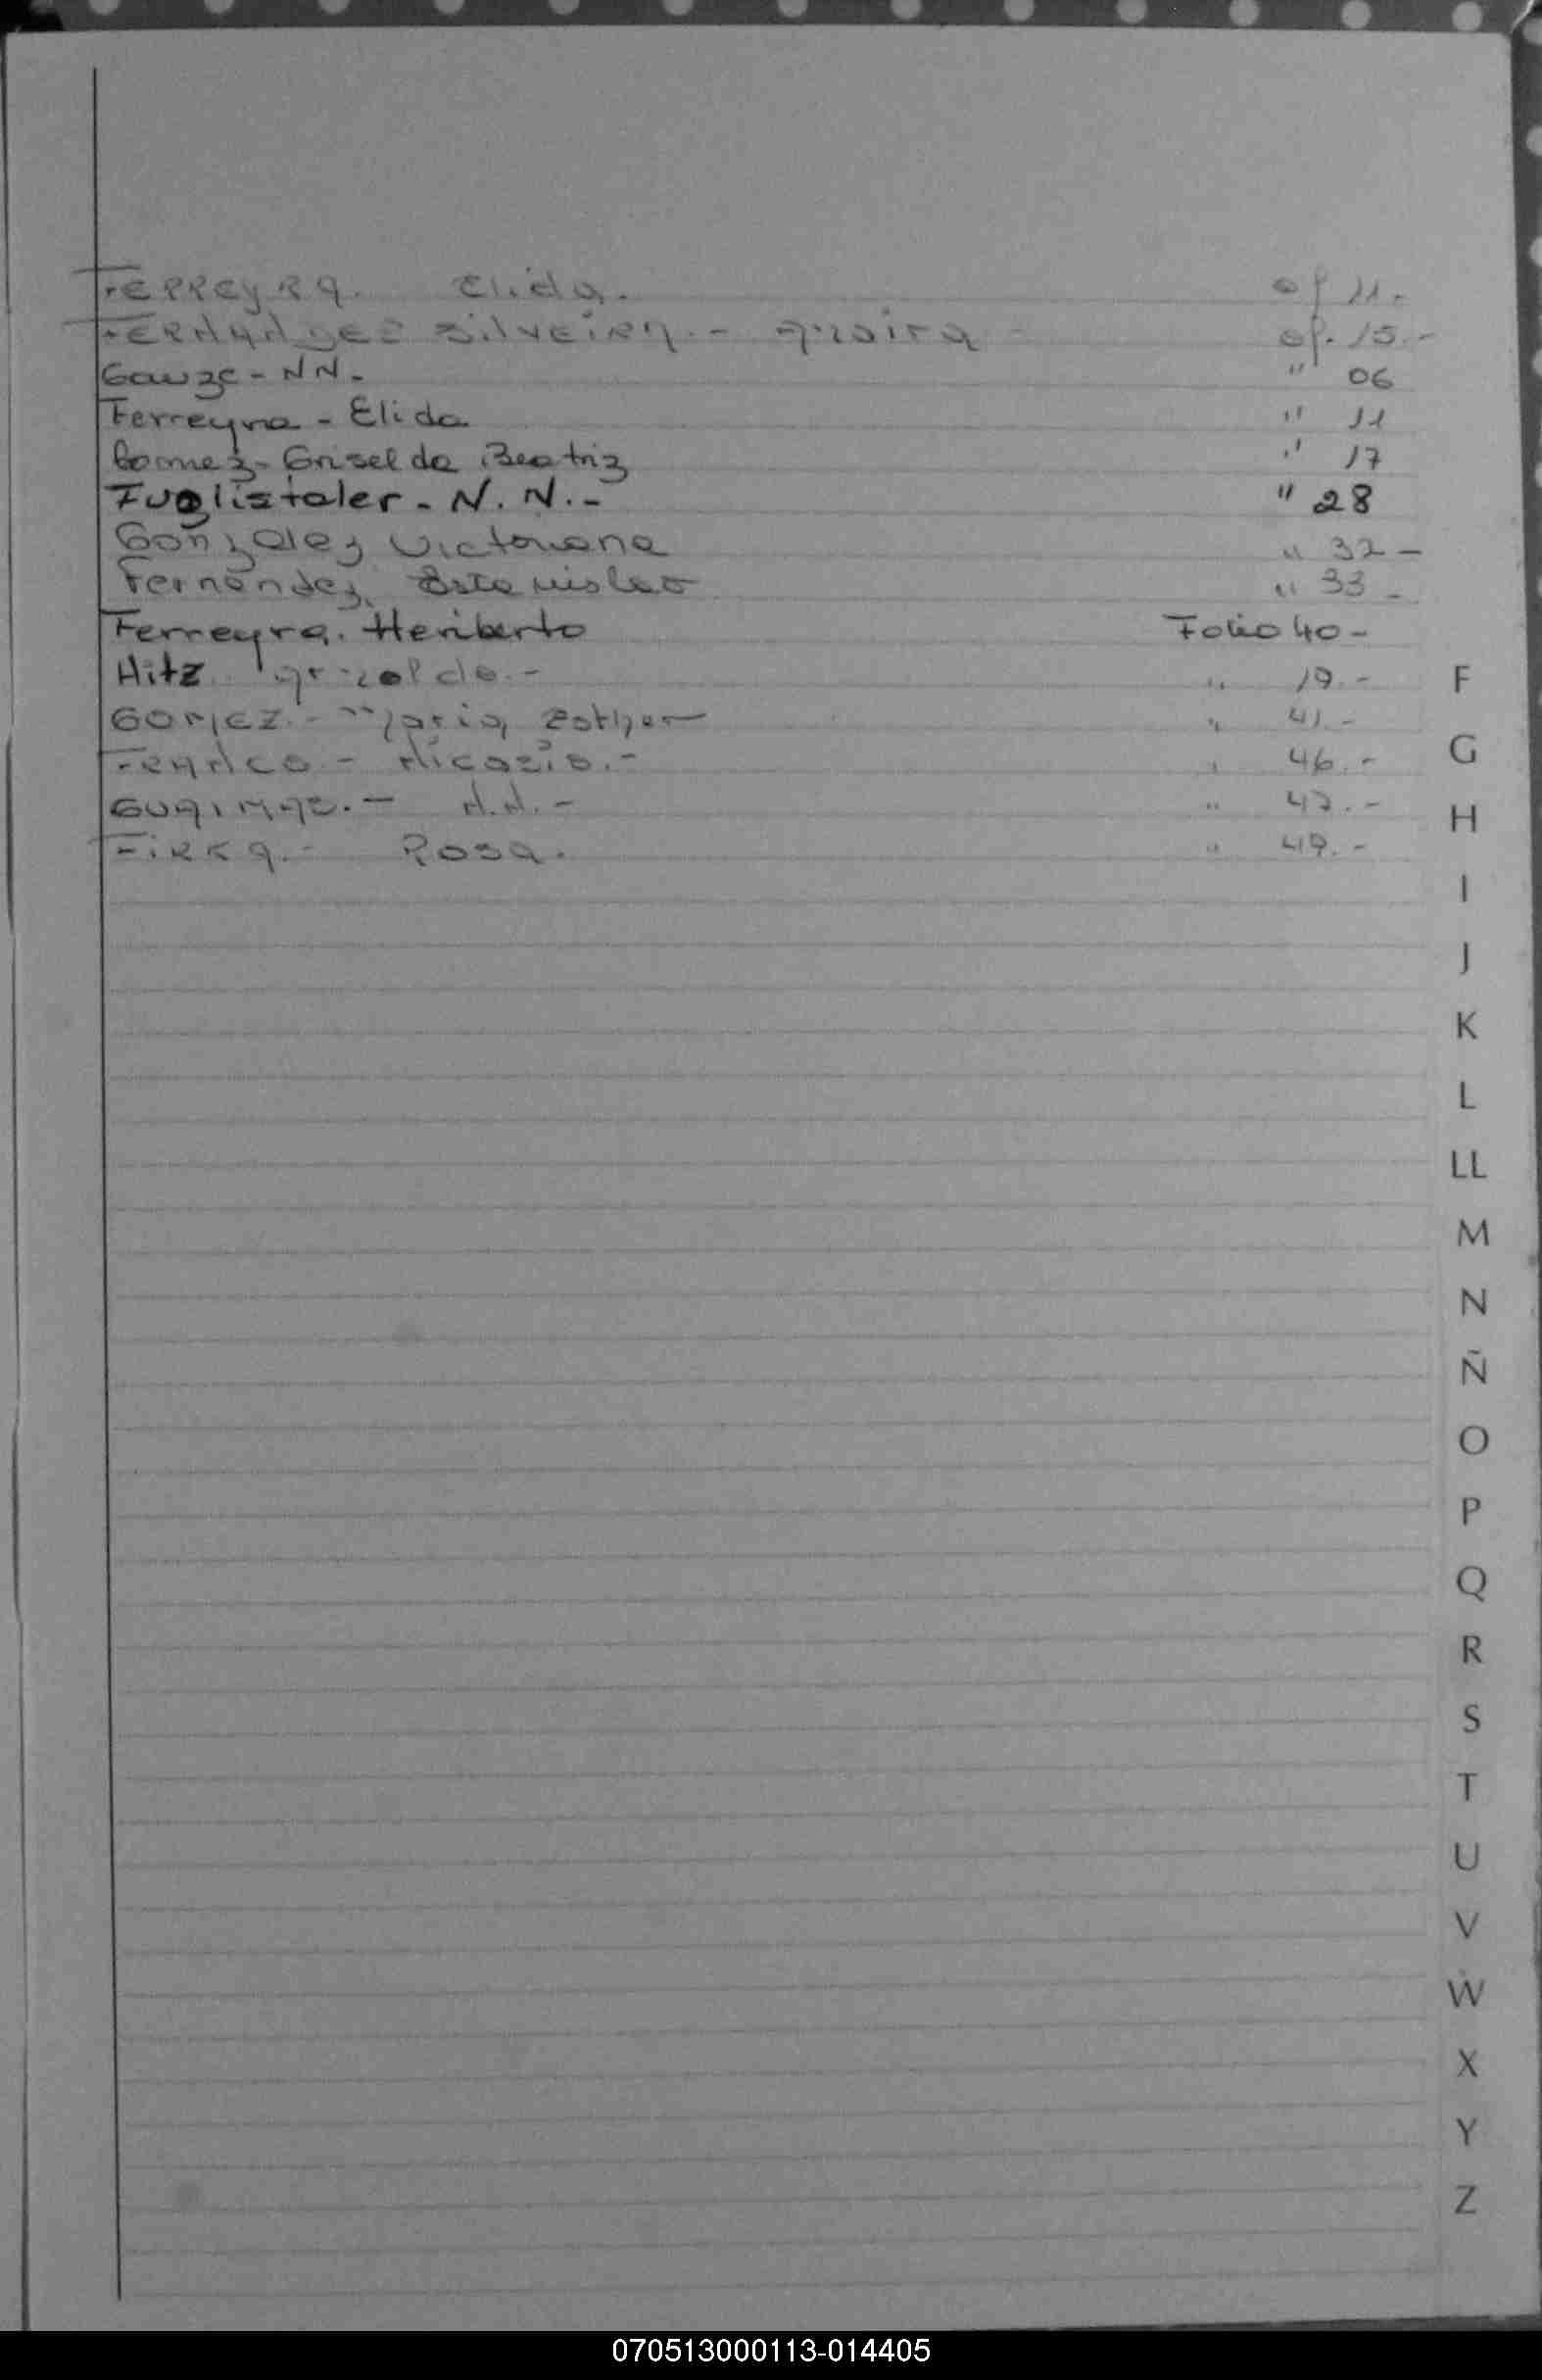 Ferreyra. Elida. of 11.-
Fernandez Silveira.- of. 15.-
Gauze - NN. " 06
Ferreyra - Elida " 11
Gomez - Griselda Beatriz " 17
Fuglistaler - N. N.- " 28
Gonzalez Victoriana " 32 -
Fernández Estanislao " 33 -
Ferreyra. Heriberto Folio 40 -
Hitz " 19.-
GOMEZ.- Maria Esther " 41.-
Franco - Nicasio.- " 46.-
N.N.- " 47.-
Rosa. " 49.-
F
G
H
I
J
K
L
LL
M
N
Ñ
O
P
Q
R
S
T
U
V
W
X
Y
Z
070513000113-014405